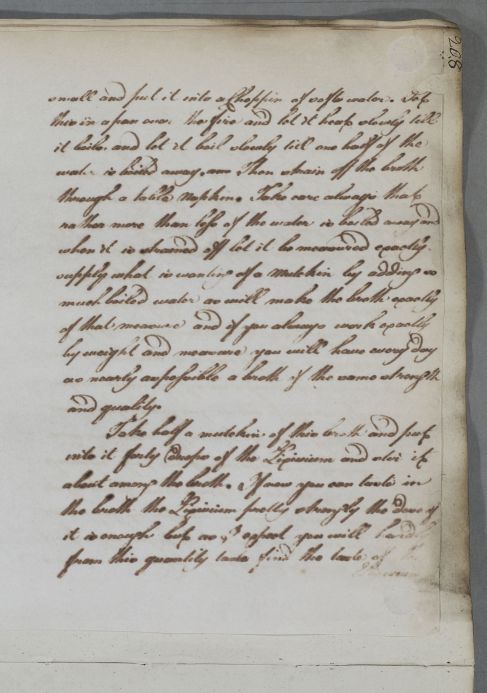 208
small and put it into a Choppin of soft water. Set
this in a pan over the fire and let it heat slowly till
it boils and let it boil slowly till one half of the
water is boiled away. Then strain off the broth
through a table napkin. Take care always that
rather more than less of the water is boiled away and
when it is strained off let it be measured exactly.
supply what is wanting of a mutchkin by adding so
much boiled water as will make the broth exactly
of that measure and if you always work exactly
by weight and measure you will have every day
as nearly as possible a broth of the same strength
and quality.
Take half a mutchkin of this broth and put
into it forty drops of the Lixivium and stir it
about among the broth. If now you can taste in
the broth the Lixivium pretty strongly the dose of
it is enough but as I expect you will hardly
from this quantity taste find the taste of the
Lixivium